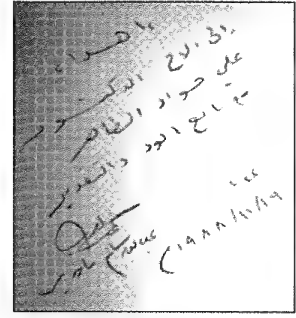 إهداء
إلى الأخ الدكتور
علي جواد الطاهر
مع الود والتقدير
١٩٨٨/١١/١٩